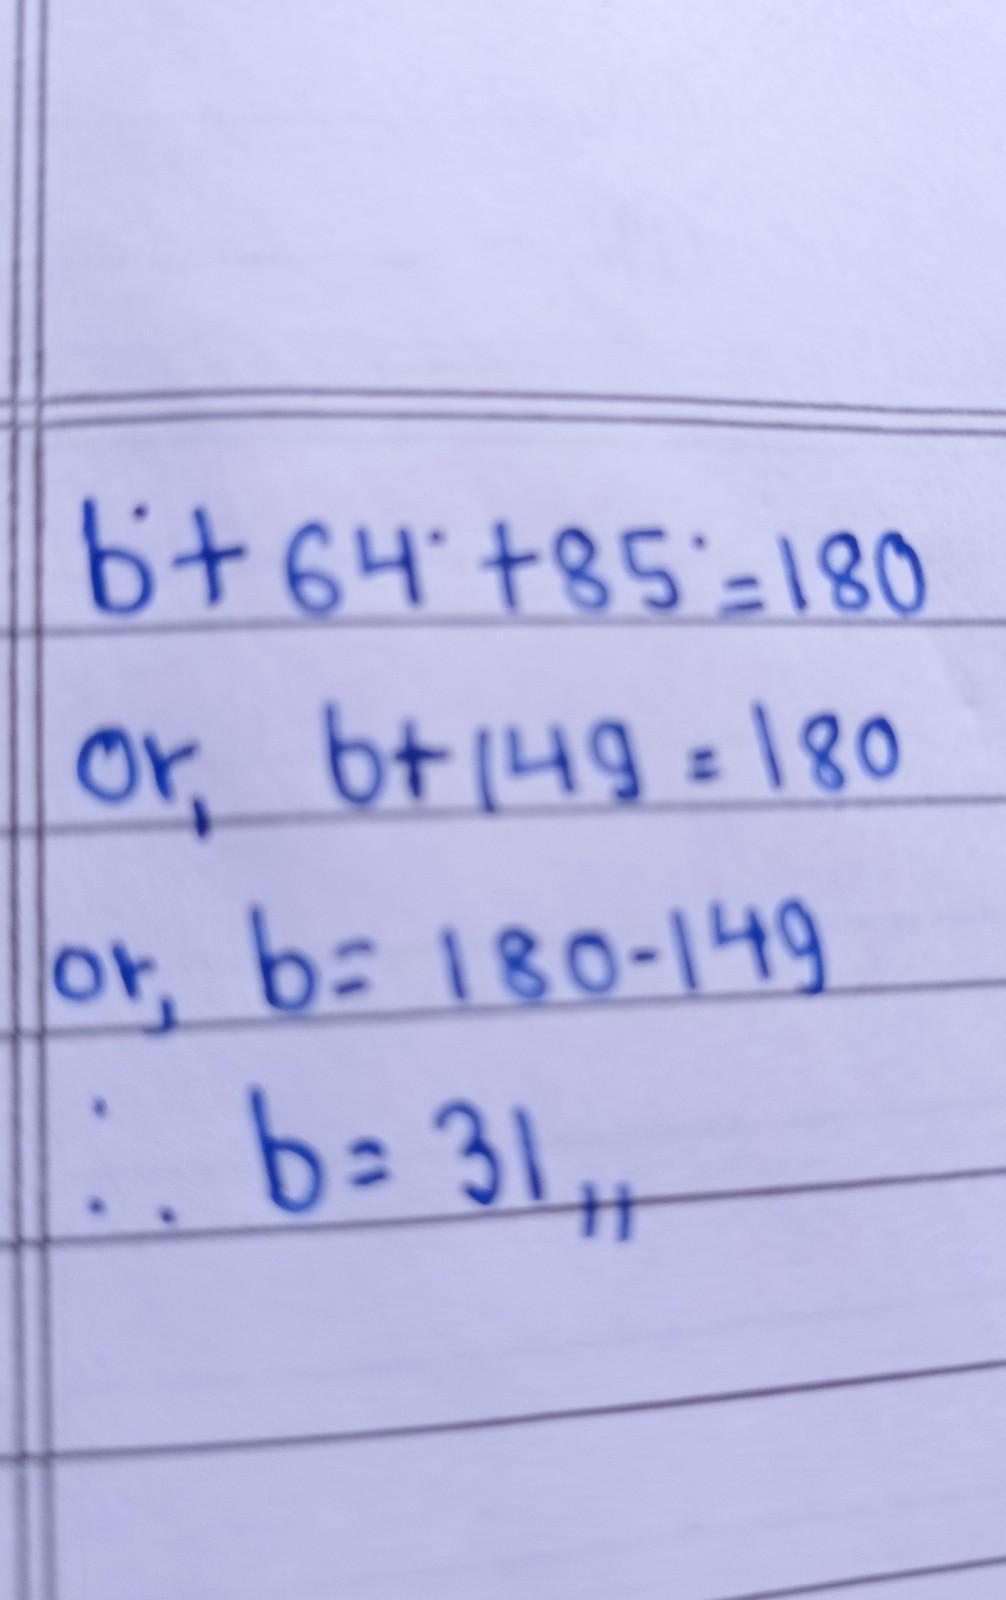 b° + 64° + 85° = 180
or, b + 149 = 180
or, b = 180 - 149
∴ b = 31,,